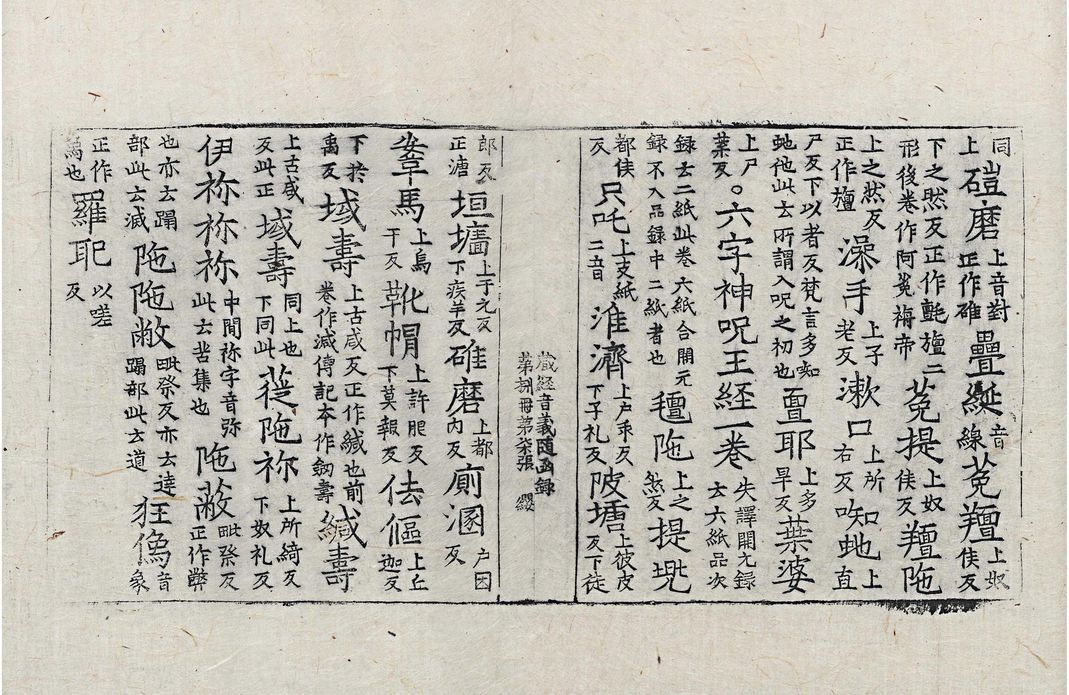 同上磑磨上音對正作碓疊綖音線㝹羶上奴侯反
下之然反正作氈旜二形後卷作阿㝹裑帝㝹提上奴侯反羶陁
上之然反正作壇澡手上子老反漱口上所右反呪虵上直
尸反下以者反梵言多知虵他此云所謂入呪之初也亶耶上多旱反葉婆
上尸葉反。六字神呪王經一卷失譯開元録云六紙品次
録云二紙此卷六紙合開元録不入品録中二紙者也氊陁上之然反提
都侯反只吒上支紙二音淮濟上户乖反下子礼反陂塘上彼皮反下徒
藏經音義隨函録第捌冊第柒張 纓
郎反正溏垣墻上于元反下疾羊反碓磨上都内反廁溷户困反
鞌馬上烏干反靴帽上許肥反下莫報反佉傴上丘迦反
下拱禹反堿壽上古咸反正作緘也前卷作減傳記本作劒壽緘壽
上古咸反此正堿壽同上也下同此蓰陁祢上所綺反下奴礼反
伊祢祢祢中間祢字音弥此云苦集也陁蔽毗祭反正作弊
也亦云蹋部此云滅陁陁敝毗祭反亦云達蹋部此云道狂僞音象
正作爲也羅𦕈以嗟反